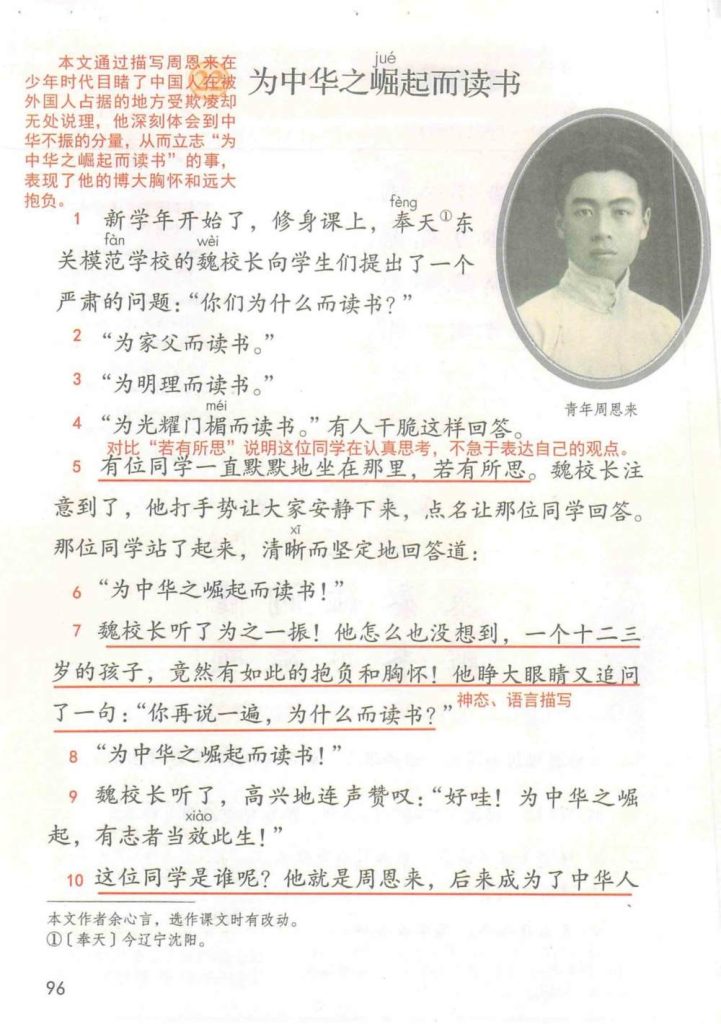 本文通过描写周恩来在
少年时代目睹了中国人在被
外国人占据的地方受欺凌却
无处说理，他深刻体会到中
华不振的分量，从而立志“为
中华之崛起而读书”的事，
表现了他的博大胸怀和远大
抱负。
22
jué
为中华之崛起而读书
fèng
1 新学年开始了，修身课上，奉天①东
fàn wèi
关模范学校的魏校长向学生们提出了一个
严肃的问题：“你们为什么而读书？”
2 “为家父而读书。”
3 “为明理而读书。”
méi
4 “为光耀门楣而读书。”有人干脆这样回答。
青年周恩来
对比“若有所思”说明这位同学在认真思考，不急于表达自己的观点。
5 有位同学一直默默地坐在那里，若有所思。魏校长注
意到了，他打手势让大家安静下来，点名让那位同学回答。
xī
那位同学站了起来，清晰而坚定地回答道：
6 “为中华之崛起而读书！”
7 魏校长听了为之一振！他怎么也没想到，一个十二三
岁的孩子，竟然有如此的抱负和胸怀！他睁大眼睛又追问
了一句：“你再说一遍，为什么而读书？”
神态、语言描写
8 “为中华之崛起而读书！”
9 魏校长听了，高兴地连声赞叹：“好哇！为中华之崛
xiào
起，有志者当效此生！”
10 这位同学是谁呢？他就是周恩来，后来成为了中华人
本文作者余心言，选作课文时有改动。
①〔奉天〕今辽宁沈阳。
96